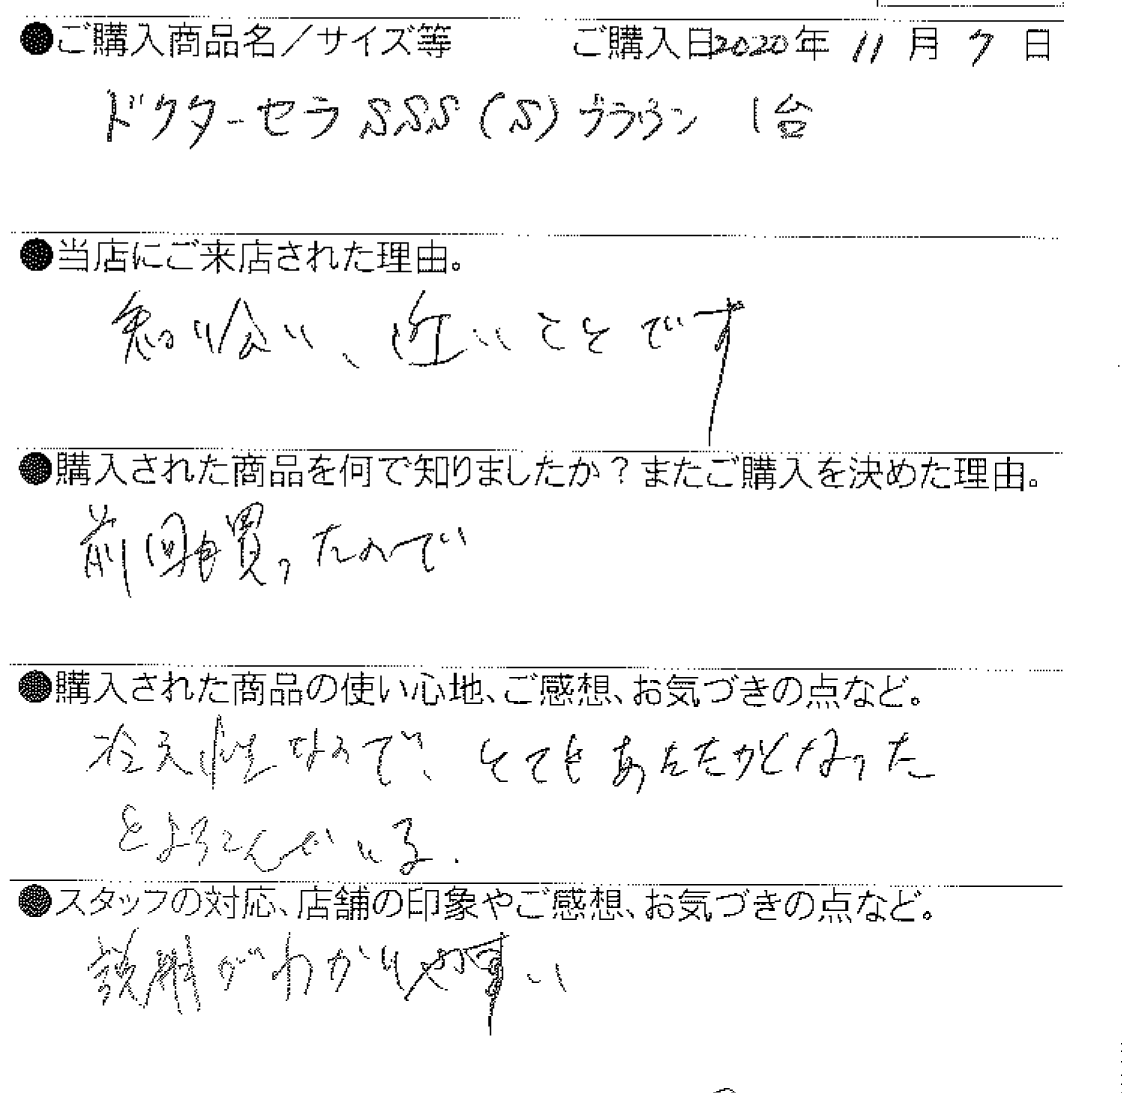 ●ご購入商品名／サイズ等 ご購入日2020年 11月 7日
ドクターセラ SSS (S) ブラウン 1台
●当店にご来店された理由。
知り合い、近いことです
●購入された商品を何で知りましたか？またご購入を決めた理由。
前回も買ったので
●購入された商品の使い心地、ご感想、お気づきの点など。
冷え性なので、とてもあたたかくなった
とよろこんでいる.
●スタッフの対応、店舗の印象やご感想、お気づきの点など。
説明がわかりやすい